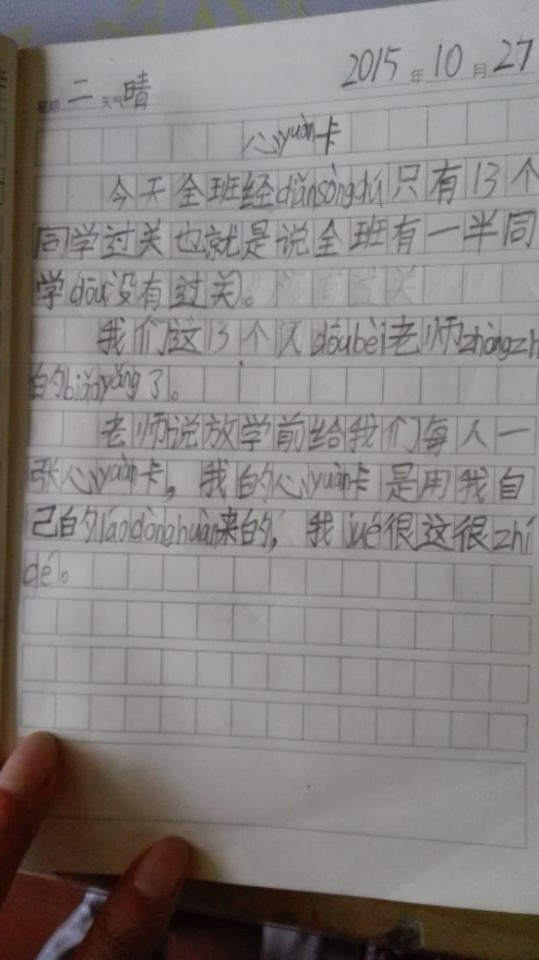 2015年10月27
星期二 天气晴
心yuàn卡
今天全班经diǎnsòngdú只有13个
同学过关也就是说全班有一半同
学dōu没有过关。
我们这13个人dōubèi老师zhòngzh
的biǎoyáng了。
老师说放学前给我们每人一
张心yuàn卡，我的心yuàn卡是用我自
己的láodònghuàn来的，我jué很这很zhí
dé。